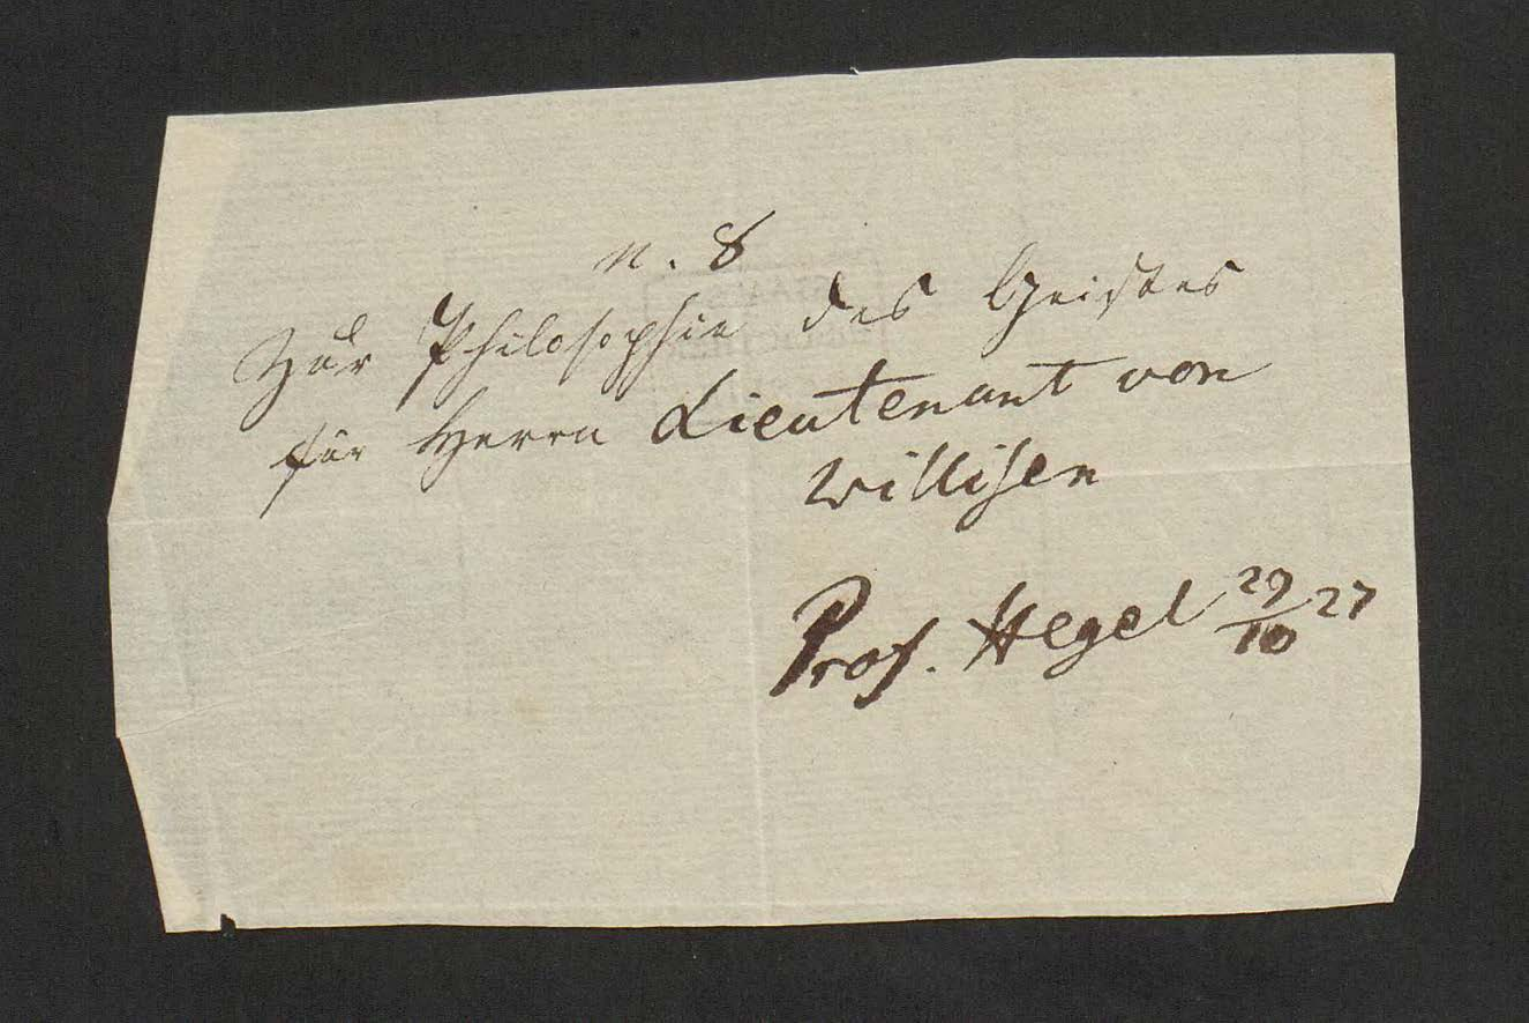 n. 8
Zur Philosophie des Geistes
für Herrn Lieutenant von
Willisen
Prof. Hegel 29/10 27